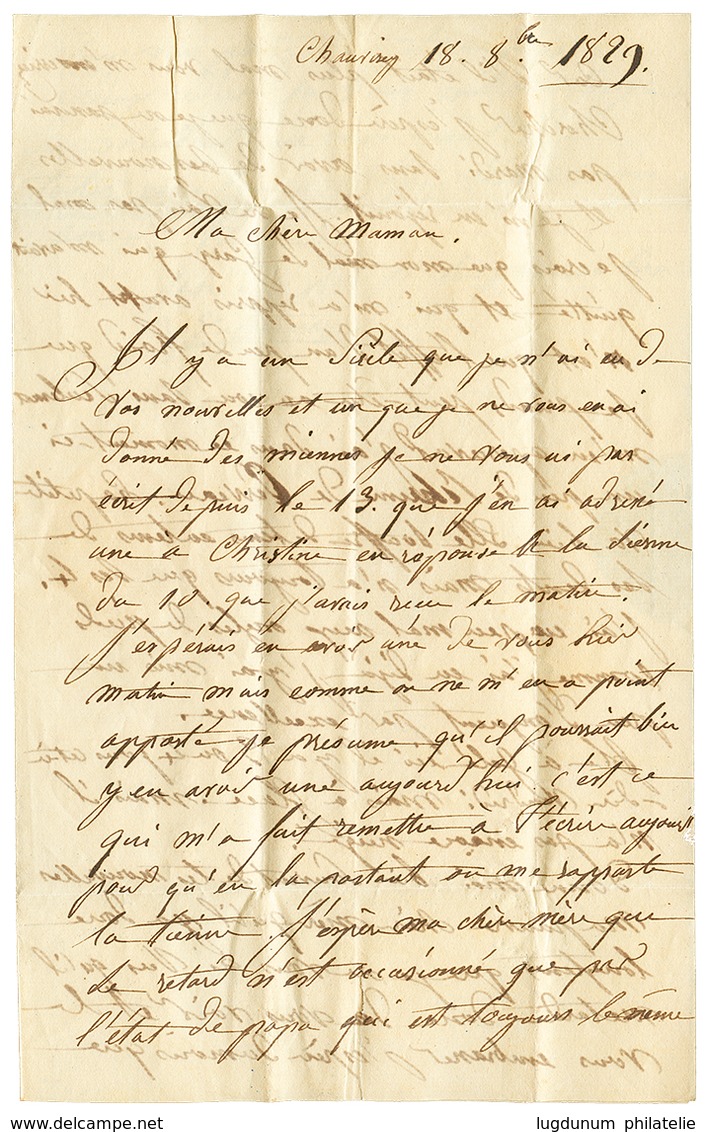 18. 8.bre 1829.
Ma chère Maman.
Il y a un Siècle que je n'ai eu de
vos nouvelles et un que je ne vous en ai
donné des miennes je ne vous ai pas
écrit depuis le 13. que j'en ai adressé
une a Christine en réponse à la sienne
du 10. que j'avais recu le matin.
J'espérais en avoir une de vous hier
matin mais comme on ne m'en a point
apporté je présume qu'il pourrait bien
y en avoir une aujourd'hui c'est ce
qui m'a fait remettre à t'écrire aujourd
pour qu'en la portant on me rapporte
la tienne. J'espère ma chère mère que
le retard n'est occasionné que par
l'état de papa qui est toujours le même
www.delcampe.net
lugdunum philatelie